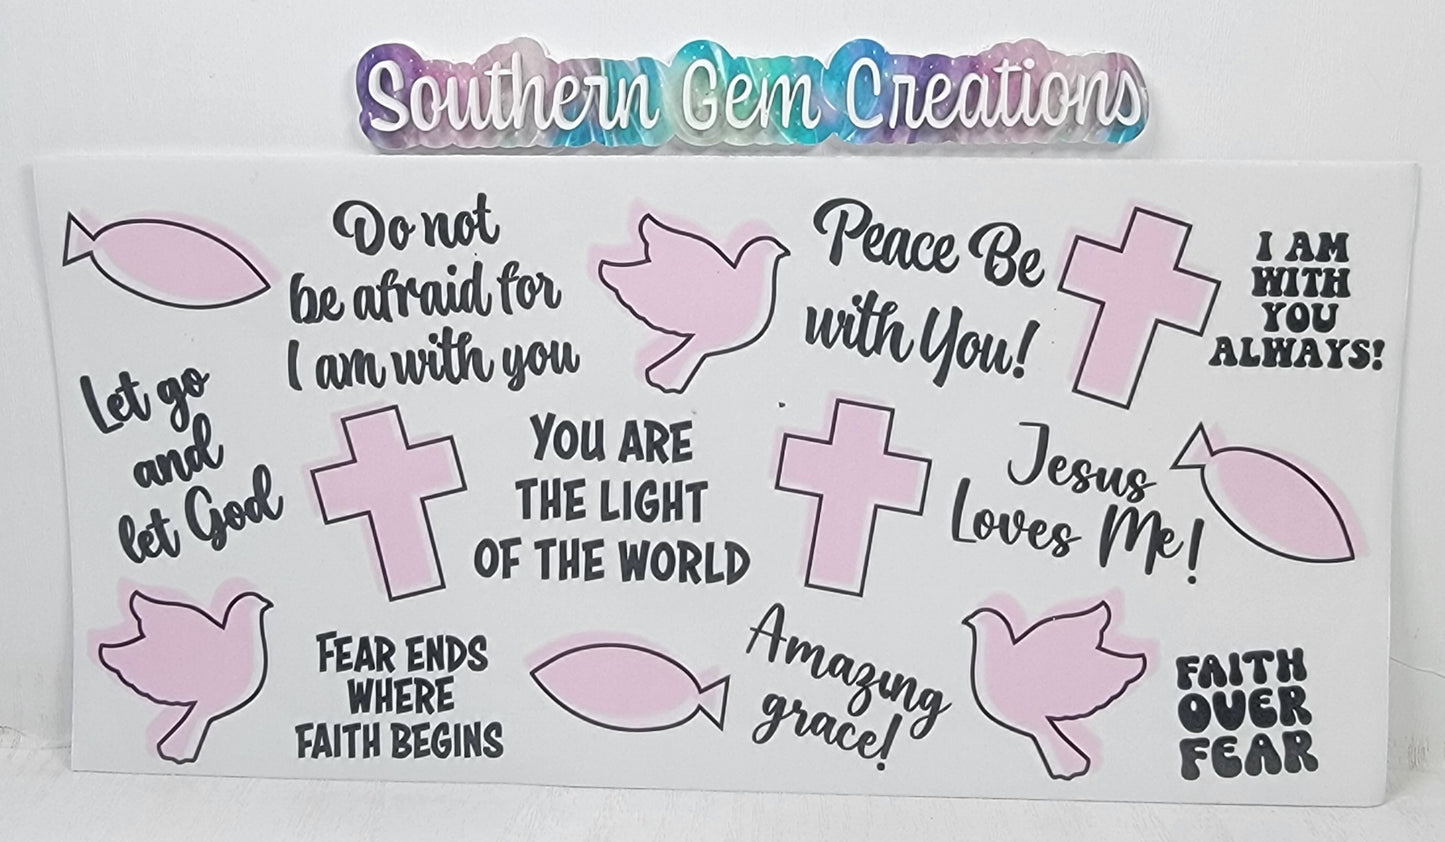 Southern Gem Creations
Do not
be afraid for
I am with you
Peace Be
with You!
I AM
WITH
YOU
ALWAYS!
Let go
and
let God
YOU ARE
THE LIGHT
OF THE WORLD
Jesus
Loves Me!
FEAR ENDS
WHERE
FAITH BEGINS
Amazing
grace!
FAITH
OVER
FEAR